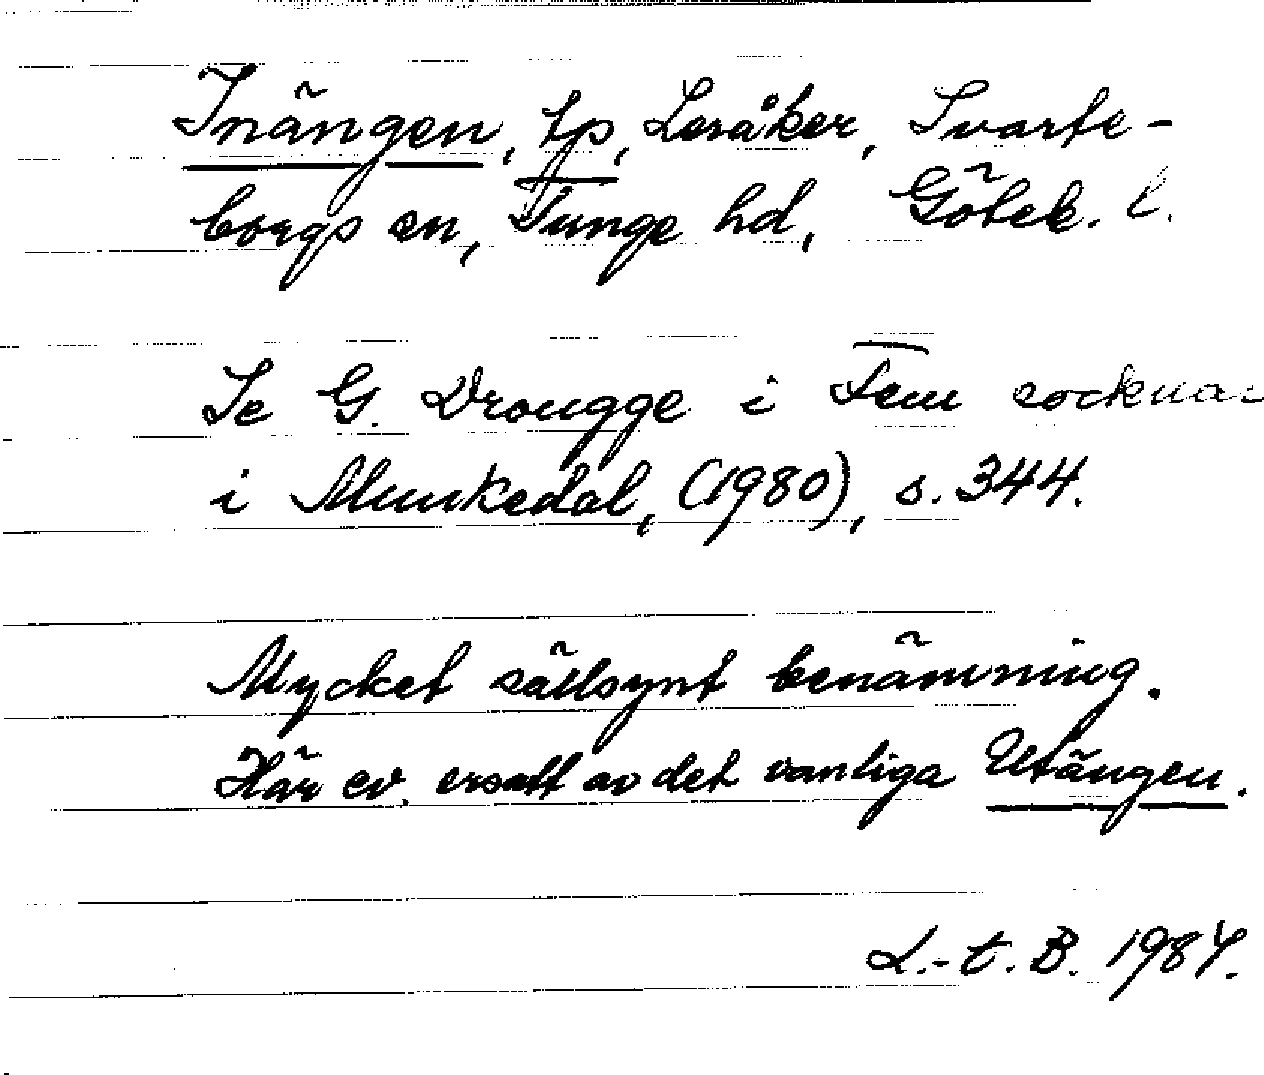 Inängen, tp, Leråker, Svarte-
borgs sn, Tunge hd, Göteb. l.
Se G. Drougge i Fem socknar
i Munkedal, (1980), s. 344.
Mycket sällsynt benämning.
Här ev. ersatt av det vanliga Utängen.
L.-t. B. 1984.